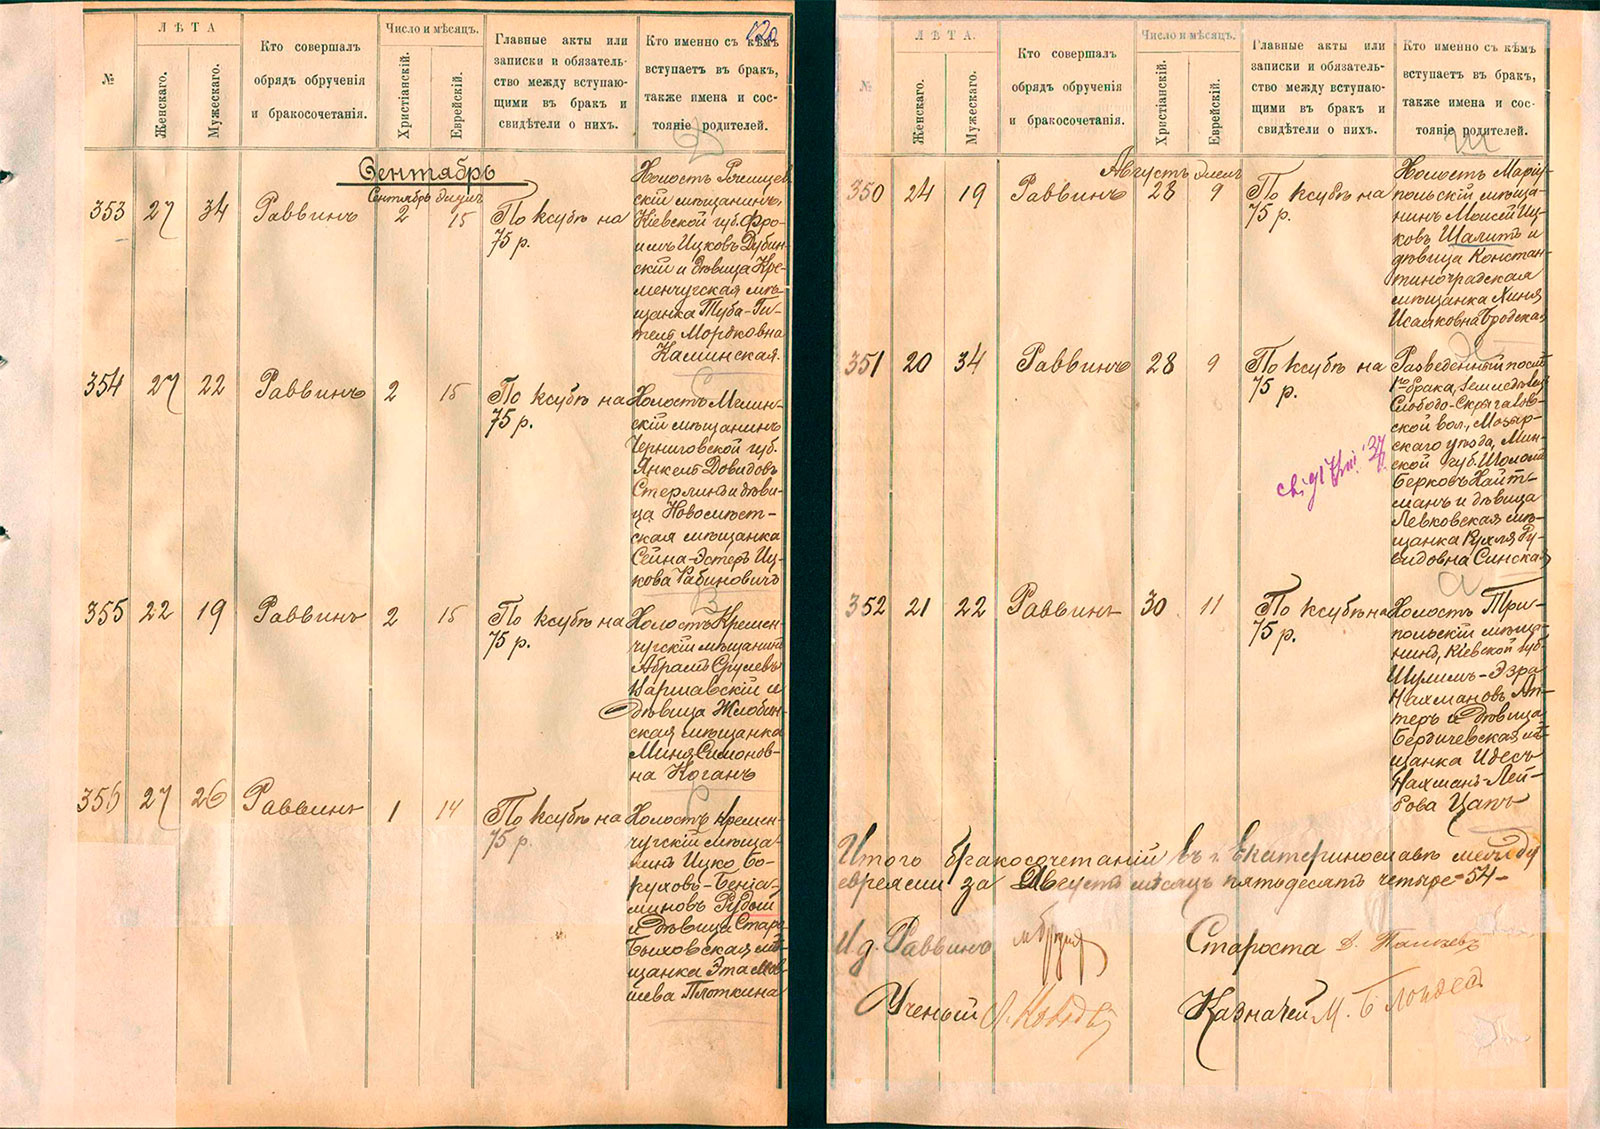 720
№
ЛѢТА
Женскаго.
Мужескаго.
Кто совершалъ
обрядъ обрученія
и бракосочетанія.
Число и мѣсяцъ.
Христіанскій.
Еврейскій.
Главные акты или
записки и обязатель-
ство между вступаю-
щими въ бракъ и
свидѣтели о нихъ.
Кто именно съ кѣмъ
вступаетъ въ бракъ,
также имена и сос-
тояніе родителей.
Сентябрь
353
27
34
Раввинъ
Сентябрь Элулъ
2
15
По ксубѣ на
75 р.
Холостъ Ржищев
скій мѣщанинъ,
Кіевской губ. Фро-
имъ Ицковъ Дубин-
скій и дѣвица Кре-
менчугская мѣ-
щанка Туба-Ги-
тель Мордковна
Каминская.
354
27
22
Раввинъ
2
15
По ксубѣ на
75 р.
Холостъ Меми-
скій мѣщанинъ
Черниговской губ.
Янкель Довидовъ
Стерлинъ и дѣви-
ца Новомѣст-
ская мѣщанка
Сейна-Эстеръ Иц-
кова Рабиновичъ
355
22
19
Раввинъ
2
15
По ксубѣ на
75 р.
Холостъ Кремен-
чугскій мѣщанинъ
Абрамъ Срулевъ
Варшавскій и
дѣвица Жлобин-
ская мѣщанка
Миня Симонов-
на Коганъ
356
27
26
Раввинъ
1
14
По ксубѣ на
75 р.
Холостъ Кремен-
чугскій мѣща-
нинъ Ицко Бо-
руховъ-Беніа-
миновъ Рудый
и дѣвица Старо-
Быховская мѣ-
щанка Эта Мов-
шева Плоткина
№
ЛѢТА.
Женскаго.
Мужескаго.
Кто совершалъ
обрядъ обрученія
и бракосочетанія.
Число и мѣсяцъ.
Христіанскій.
Еврейскій.
Главные акты или
записки и обязатель-
ство между вступаю-
щими въ бракъ и
свидѣтели о нихъ.
Кто именно съ кѣмъ
вступаетъ въ бракъ,
также имена и сос-
тояніе родителей.
350
24
19
Раввинъ
Августъ Элулъ
28
9
По ксубѣ на
75 р.
Холостъ Маріу-
польскій мѣща-
нинъ Моисей Иц-
ковъ Шалитъ и
дѣвица Констан-
тиноградская
мѣщанка Хиня
Исааковна Бродская
351
20
34
Раввинъ
28
9
По ксубѣ на
75 р.
Разведенный послѣ
1го брака, земледѣлецъ
Слободо-Скрыгалов-
ской вол., Мозыр-
скаго уѣзда, Мин-
ской губ. Шоломъ
Берковъ Найт-
манъ и дѣвица
Левковская мѣ-
щанка Рухля Ру-
видовна Синская
352
21
22
Раввинъ
30
11
По ксубѣ на
75 р.
Холостъ Три-
польскій мѣща-
нинъ, Кіевской губ.
Шулимъ-Эзра
Нахмановъ Ап-
теръ и дѣвица
Бердичевская мѣ-
щанка Идесъ
Нахманъ-Лей-
бова Цапъ
Итого бракосочетаній въ г. Екатеринославѣ между
евреями за Августъ мѣсяцъ пятьдесятъ четыре -54-
И д. Раввинъ
Староста
Ученый
Казначей М.